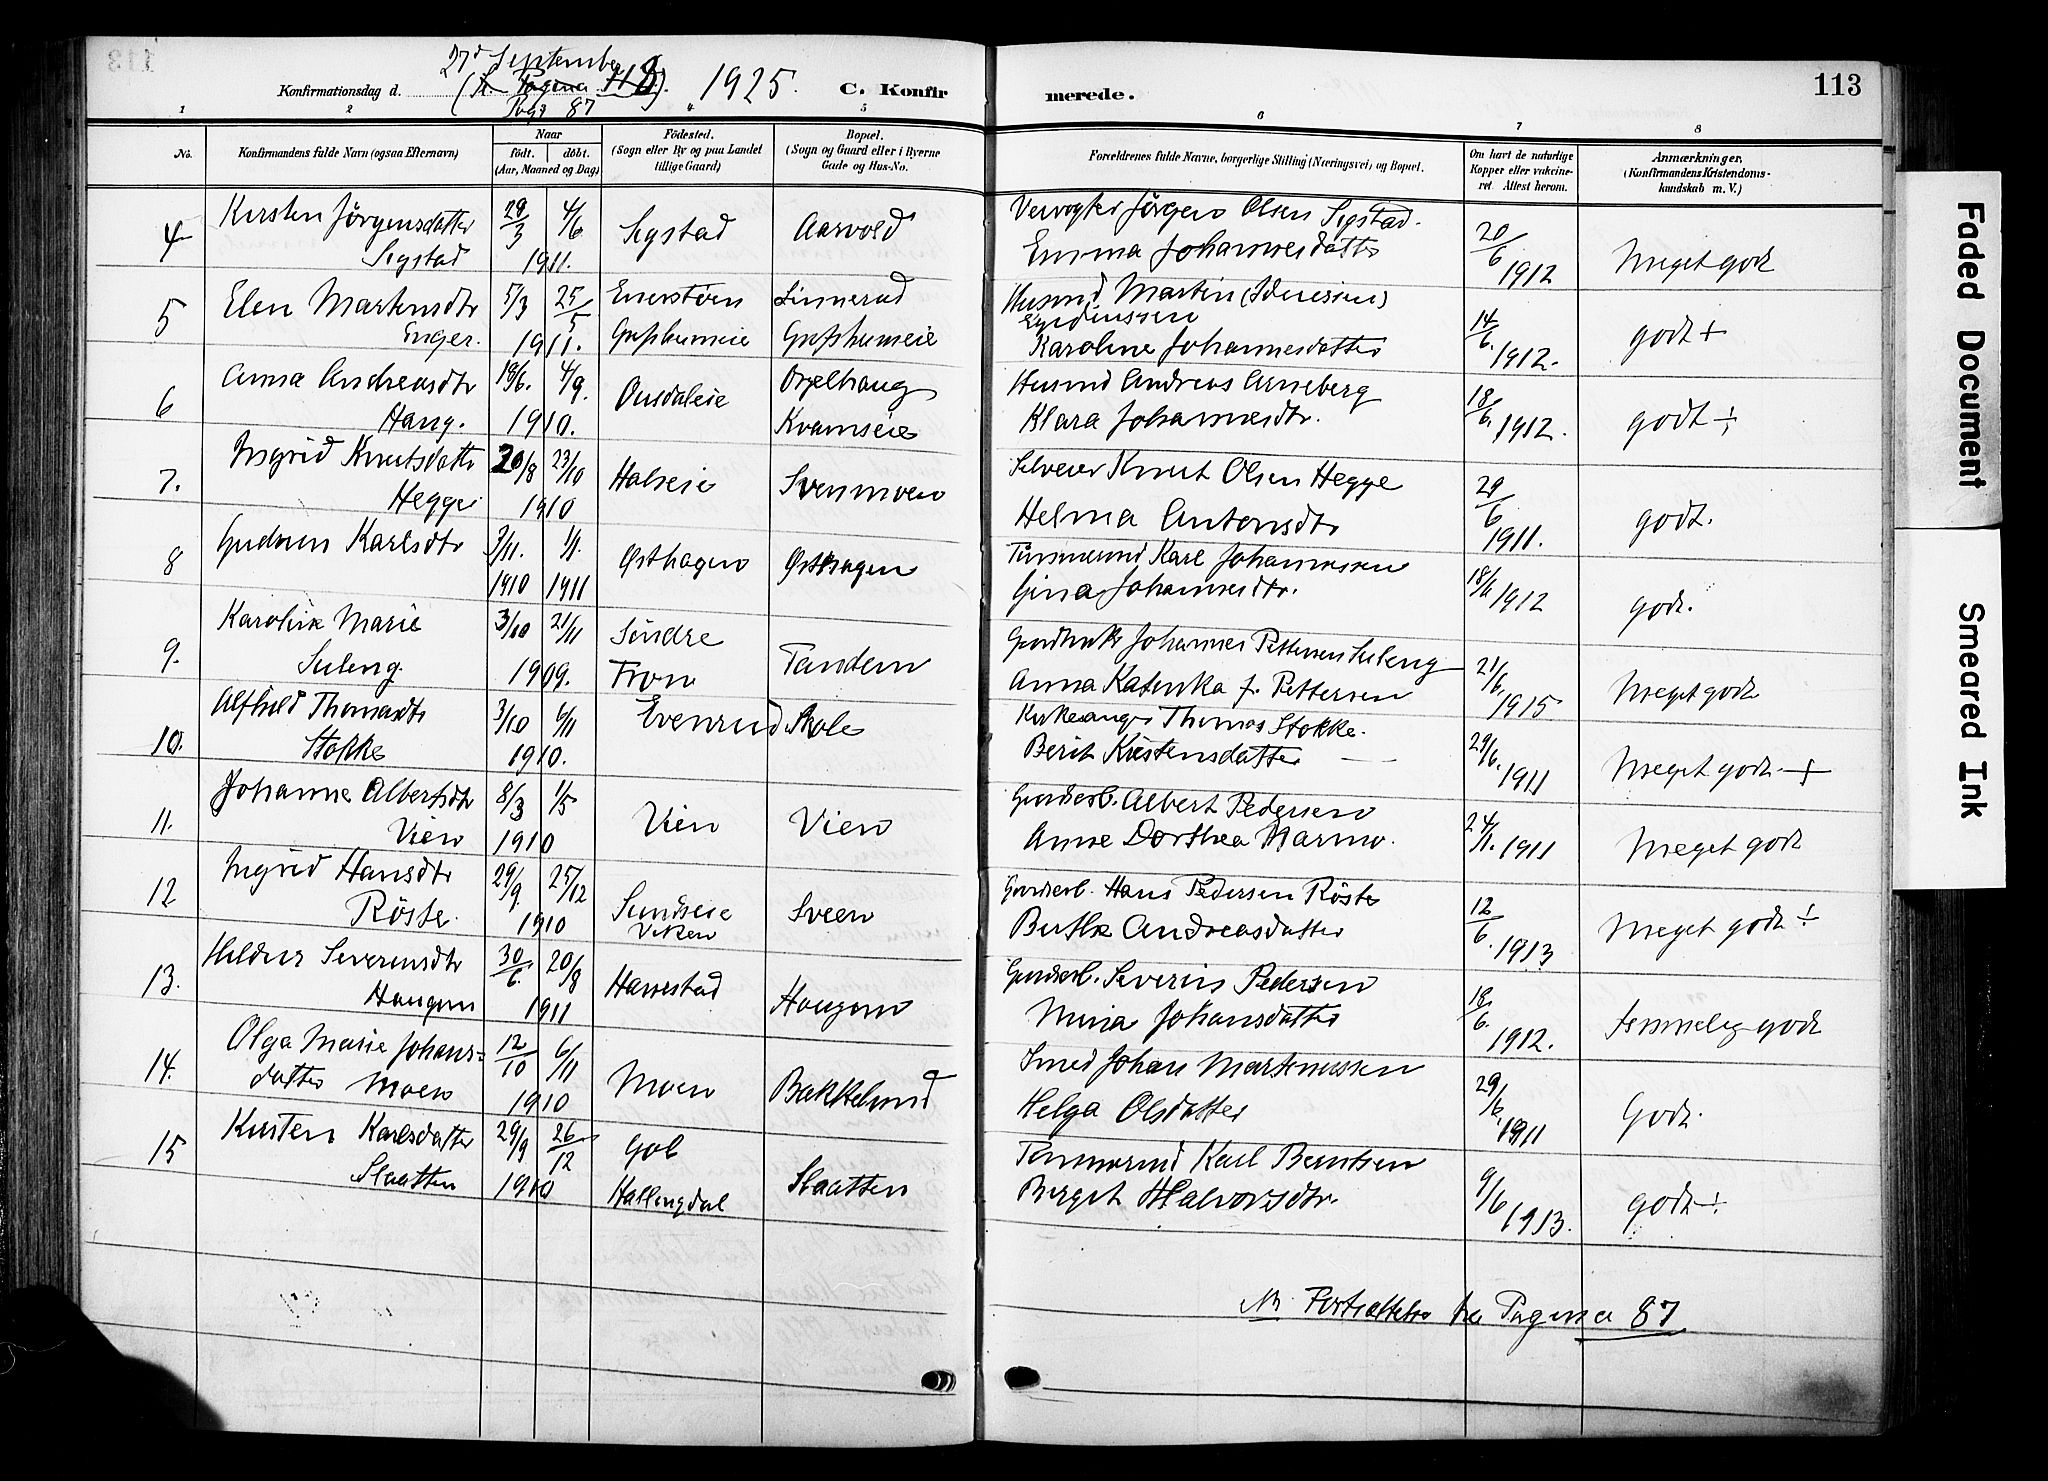 113
27d September
Konfirmationsdag d. (Se Pagina 113). 1925. C. Konfirmerede.
Pag. 87
1 2 4 5 6 7 8
No. Konfirmandens fulde Navn (ogsaa Efternavn) Naar født. døbt. (Aar, Maaned og Dag) Fødested. (Sogn eller By og paa Landet tillige Gaard) Bopæl. (Sogn og Gaard eller i Byerne Gade og Hus-No. Forældrenes fulde Navne, borgerlige Stilling (Næringsvei) og Bopæl. Om havt de naturlige Kopper eller vakcineret. Attest herom. Anmærkninger. (Konfirmandens Kristendomskundskab m. V.)
4 Kirsten Jörgensdatter Sigstad 29/3 4/6 1911. Sigstad Aasvold
Jörgen Olsen Sigstad. Emma Johannesdatter 20/6 1912 Meget godt
5 Elen Martinsdtr Enger. 5/3 25/5 1911. Linnerud
Husmd. Martin Karoline Johannesdatter 14/6. 1912. godt +
6 Anna Andreasdtr Haug. 19/6. 4/9. 1910. Ousdaleie Kvamseie
Husmd Andreas Arneberg Klara Johannesdtr. 18/6. 1912. godt ÷
7. Ingrid Knutsdatter Hegge 20/8 23/10 1910 Halseie Svenmoen
Selveier Knut Olsen Hegge Helma Antonsdtr 29/6 1911. godt.
8 Gudrun Karlsdtr 3/11. 1/1. 1910 1911 Østhagen Østhagen
Tömmermd Karl Johannessen Gina Johannesdtr. 18/6 1912 godt.
9. Karoline Marie Suleng. 3/10 21/11 1909. Söndre Fron Tandem
Johannes Pettersen Suleng Anna Katinka f. Pettersen 21/6. 1915 Meget godt
10. Alfhild Thomasdtr Stokke 3/10 6/11 1910. Evenrud Skole
Kirkesanger Thomas Stokke. Berit Kristensdatter 29/6. 1911 Meget godt +
11. Johanne Albertsdtr Vien 8/3 1/5 1910 Vien Vien
Gardarb. Albert Pedersen Anne Dorthea Marmo. 24/11. 1911 Meget godt
12 Ingrid Hansdtr Röste. 29/9. 25/12 1910 Sundseie Viken Sveen
Gardarb. Hans Pedersen Röste Berthe Andreasdatter 12/6. 1913 Meget godt ÷
13. Hildur Severinsdtr Haugen 30/6. 20/8 1911 Harrestad Haugen
Gardarb. Severin Pedersen Mina Johansdatter 18/6. 1912. temmelig godt
14. Olga Marie Johans=datter Moen 12/10 6/11 1910 Moen Bakkelund
Smed Johan Martinussen Helga Olsdatter 29/6. 1911 Godt.
15 Kirsten Karlsdatter Slaatten 29/9 26/12 1910 Gol Hallingdal Slaatten
Tömmermd Karl Berntsen Berget Halvorsdtr. 9/6 1913. godt ÷
NB. Fortsættelse fra Pagina 87
Faded Document
Smeared Ink